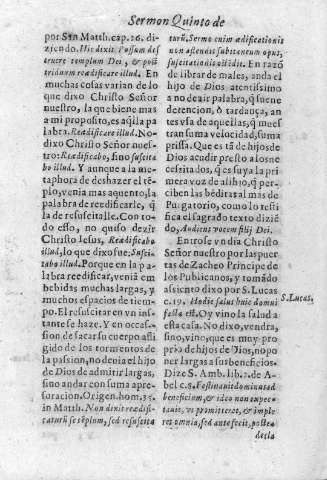 Sermon Quinto de
por San Matth. cap. 26. di-
ziendo. Hic dixit: Possum des
truere templum Dei, & post
triduum reædificare illud. En
muchas cosas varian de lo
que dixo Christo Señor
nuestro, la que bienẽ mas
a mi proposito, es aq̃lla pa
labra. Reædificare illud. No
dixo Christo Señor nues-
tro: Reædificabo, sino suscita
bo illud. Y aunque a la me
taphora de deshazer el tẽ-
plo, venia mas aquento, la
palabra de reedificarle, q̃
la de resuscitalle. Con to-
do esso, no quiso dezir
Christo Iesus, Reædificabo
illud, lo que dixo fue: Susci-
tabo illud. Porque en la pa
labra reedificar, veniã em
bebidas muchas largas, y
muchos espacios de tiem-
po. El resuscitar en vn ins-
tante se haze. Y en occas-
sion de sacar su cuerpo affli
gido de los tormentos de
la passion, no deuia el hijo
de Dios de admitir largas,
sino andar con suma apre-
soracion. Origen. hom. 35.
in Matth. Non dixit reædifi-
caturũ se tẽplum, sed resuscita
turũ. Sermo enim ædificationis
non ostendit subitaneum opus,
suscitationis ostẽdit. En razõ
de librar de males, anda el
hijo de Dios atentissimo
a no dezir palabra, q̃ suene
detencion, ò tardança, an
tes vsa de aquellas, q̃ mues
tran suma velocidad, suma
prissa. Que es tã de hijos de
Dios acudir presto a los ne
cessitados, q̃ es suya la pri
mera voz de aliuio, q̃ per-
ciben las bẽditas almas de
Purgatorio, como lo testi
fica el sagrado texto diziẽ
do, Audient vocem filij Dei.
Entrose vn dia Christo
Señor nuestro por las puer
tas de Zacheo Principe de
los Publicanos, y tomãdo
assiento dixo por S. Lucas
c. 19. Hodie salus huic domui
facta est. Oy vino la salud a
esta casa. No dixo, vendra,
sino, vino, que es muy pro
prio de hijos de Dios, no po
ner largas a sus beneficios.
Dize S. Amb. lib. 2. de A-
bel c. 8. Festinauit dominus ad
beneficium, & ideo non expec-
tauit, vt promitteret, & imple
ret omnia, sed ante fecit, postea
S. Lucas,